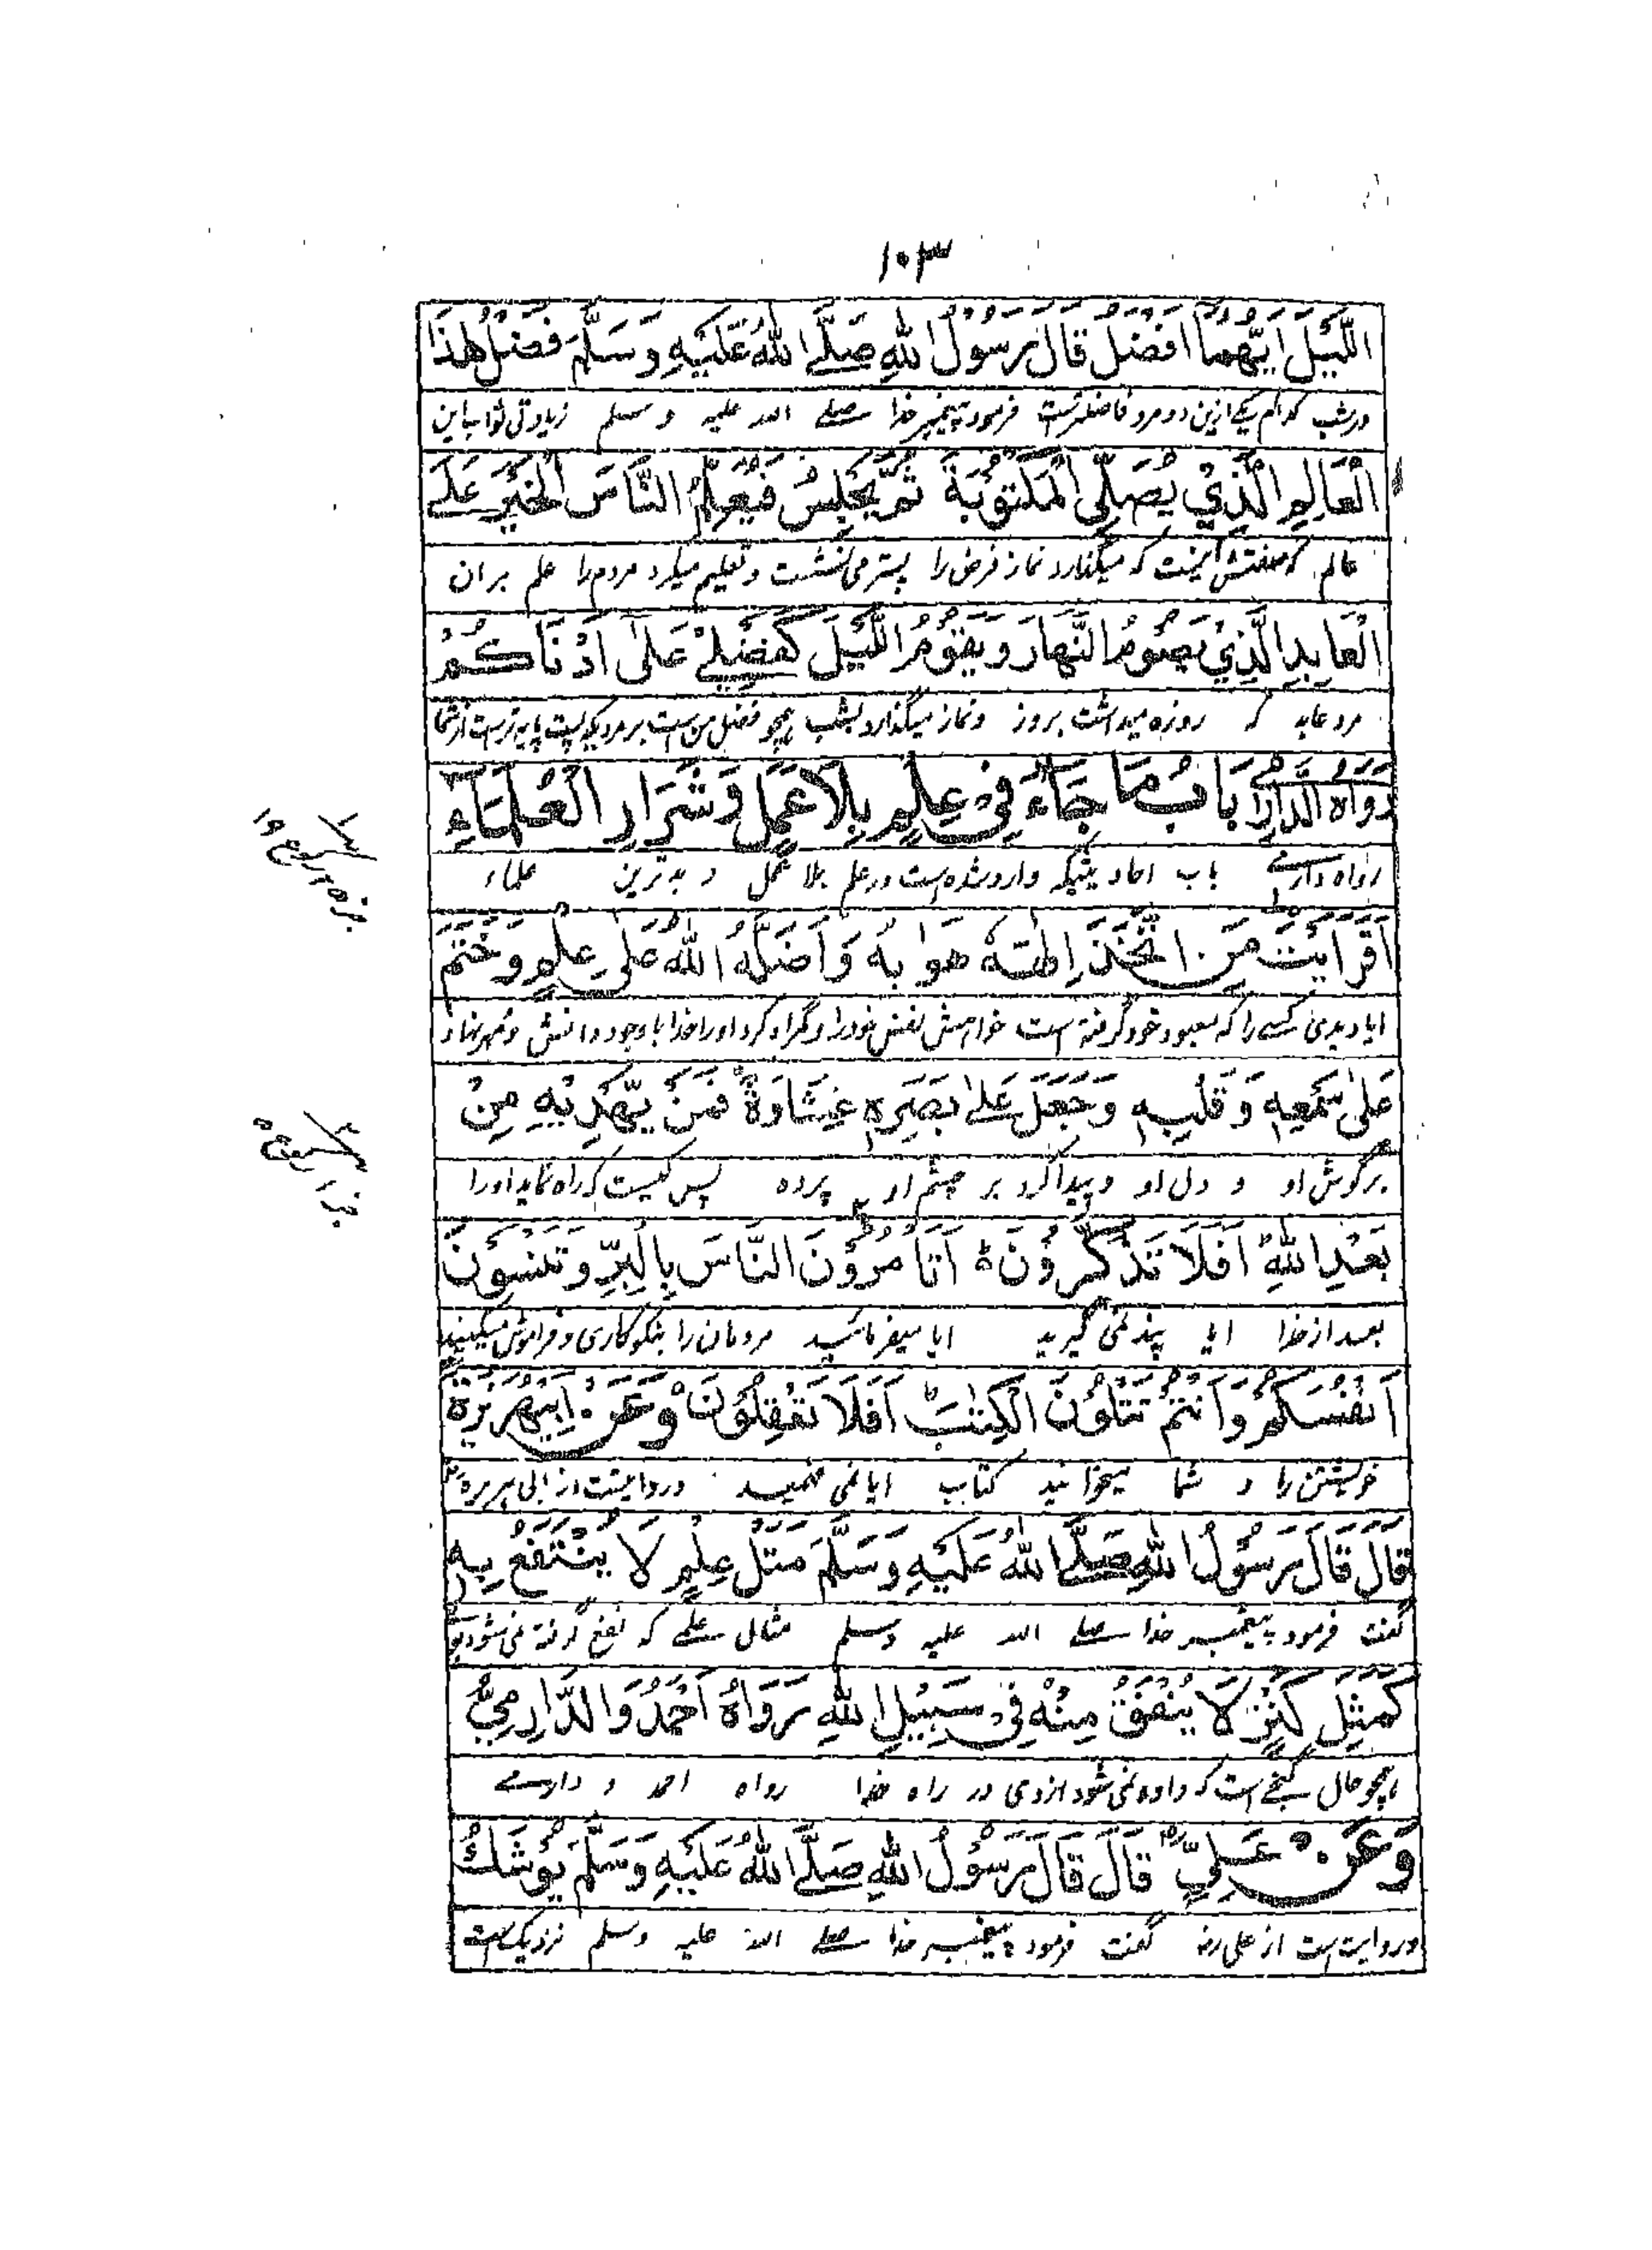 ۱۰۳
اللَّيْلَ اَيُّهُمَا اَفْضَلُ قَالَ رَسُوْلُ اللهِ صَلَّے اللهُ عَلَيْهِ وَسَلَّمَ فَضْلُ هٰذَا
درشب کدام یکے ازین دو مرد فاضلترست فرمود پیغمبر خدا صلے الله علیه وسلم زیادتی ثواب این
الْعَالِمِ الَّذِيْ يُصَلِّي الْمَكْتُوْبَةَ ثُمَّ يَجْلِسُ فَيُعَلِّمُ النَّاسَ الْخَيْرَ عَلَے
عالم که صفتش اینست که میگذارد نماز فرض را پستر می نشست و تعلیم میکرد مردم را علم بر ان
الْعَابِدِ الَّذِيْ يَصُوْمُ النَّهَارَ وَيَقُوْمُ اللَّيْلَ كَفَضْلِيْ عَلٰى اَدْنَاكُمْ
مرد عابد که روزه میداشت بروز ونماز میگذارد بشب همچو فضل من است بر مردیکه پست پایه ترست از شما
رَوَاهُ الدَّارِمِے بَابُ مَا جَاءَ فِيْ عِلْمٍ بِلَا عَمَلٍ وَشَرَارِ الْعُلَمَاءِ
رواه دارمے باب احادیثیکه وارد شده است در علم بلا عمل و بدترین علماء
اَفَرَاَيْتَ مَنِ اتَّخَذَ اِلٰهَهٗ هَوٰىهُ وَاَضَلَّهُ اللهُ عَلٰى عِلْمٍ وَخَتَمَ
ایا دیدی کسے را که معبود خود گرفته است خواهش نفس خود را و گمراه کرد اورا خدا با وجود دانش و مهر نهاد
عَلٰى سَمْعِهٖ وَقَلْبِهٖ وَجَعَلَ عَلٰى بَصَرِهٖ غِشَاوَةً فَمَنْ يَّهْدِيْهِ مِنْ
بر گوش او و دل او و پیدا کرد بر چشم او پرده پس کیست که راه نماید اورا
بَعْدِ اللهِ اَفَلَا تَذَكَّرُوْنَ ط اَتَاْمُرُوْنَ النَّاسَ بِالْبِرِّ وَتَنْسَوْنَ
بعد از خدا ایا پند نمی گیرید ایا میفرمائید مردمان را بنکوکاری و فراموش میکنید
اَنْفُسَكُمْ وَاَنْتُمْ تَتْلُوْنَ الْكِتٰبَ ط اَفَلَا تَعْقِلُوْنَ وَعَنْ اَبِيْ هُرَيْرَةَ
خویشتن را و شما میخوانید کتاب ایا نمی فهمید و روایتست از ابی هریره
قَالَ قَالَ رَسُوْلُ اللهِ صَلَّے اللهُ عَلَيْهِ وَسَلَّمَ مَثَلُ عِلْمٍ لَا يُنْتَفَعُ بِهٖ
گفت فرمود پیغمبر خدا صلے الله علیه وسلم مثال علمے که نفع گرفته نمی شود
كَمَثَلِ كَنْزٍ لَا يُنْفَقُ مِنْهُ فِيْ سَبِيْلِ اللهِ رَوَاهُ اَحْمَدُ وَالدَّارِمِيُّ
همچو حال گنجے است که داده نمی شود از وی در راه خدا رواه احمد و دارمے
وَعَنْ عَلِيٍّ قَالَ قَالَ رَسُوْلُ اللهِ صَلَّے اللهُ عَلَيْهِ وَسَلَّمَ يُوْشِكُ
وروایت است از علی رض گفت فرمود پیغمبر خدا صلے الله علیه وسلم نزدیک است